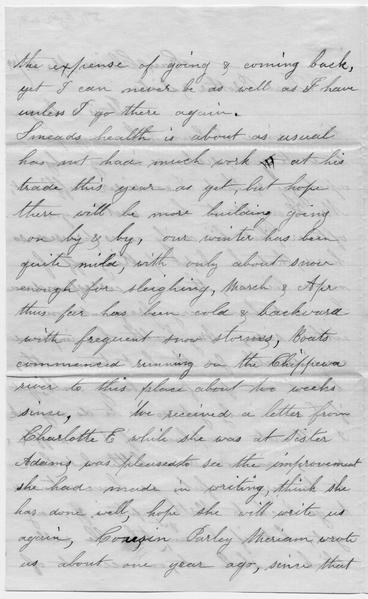 the expense of going & coming back,
yet I can never be as well as I have
unless I go there again.
Sneads health is about as usual
has not had much work at his
trade this year as yet, but hope
there will be more building going
on by & by, our winter has been
quite mild, with only about snow
enough for sleighing, March & Apr
thus far has been cold & backward
with frequent snow storms, Boats
commenced running on the Chippewa
river to this place about two weeks
since, We received a letter from
Charlotte E while she was at Sister
Adams was pleased to see the improvement
she had made in writing, think she
has done well, hope she will write us
again, Cousin Parley Meriam wrote
us about one year ago, since that